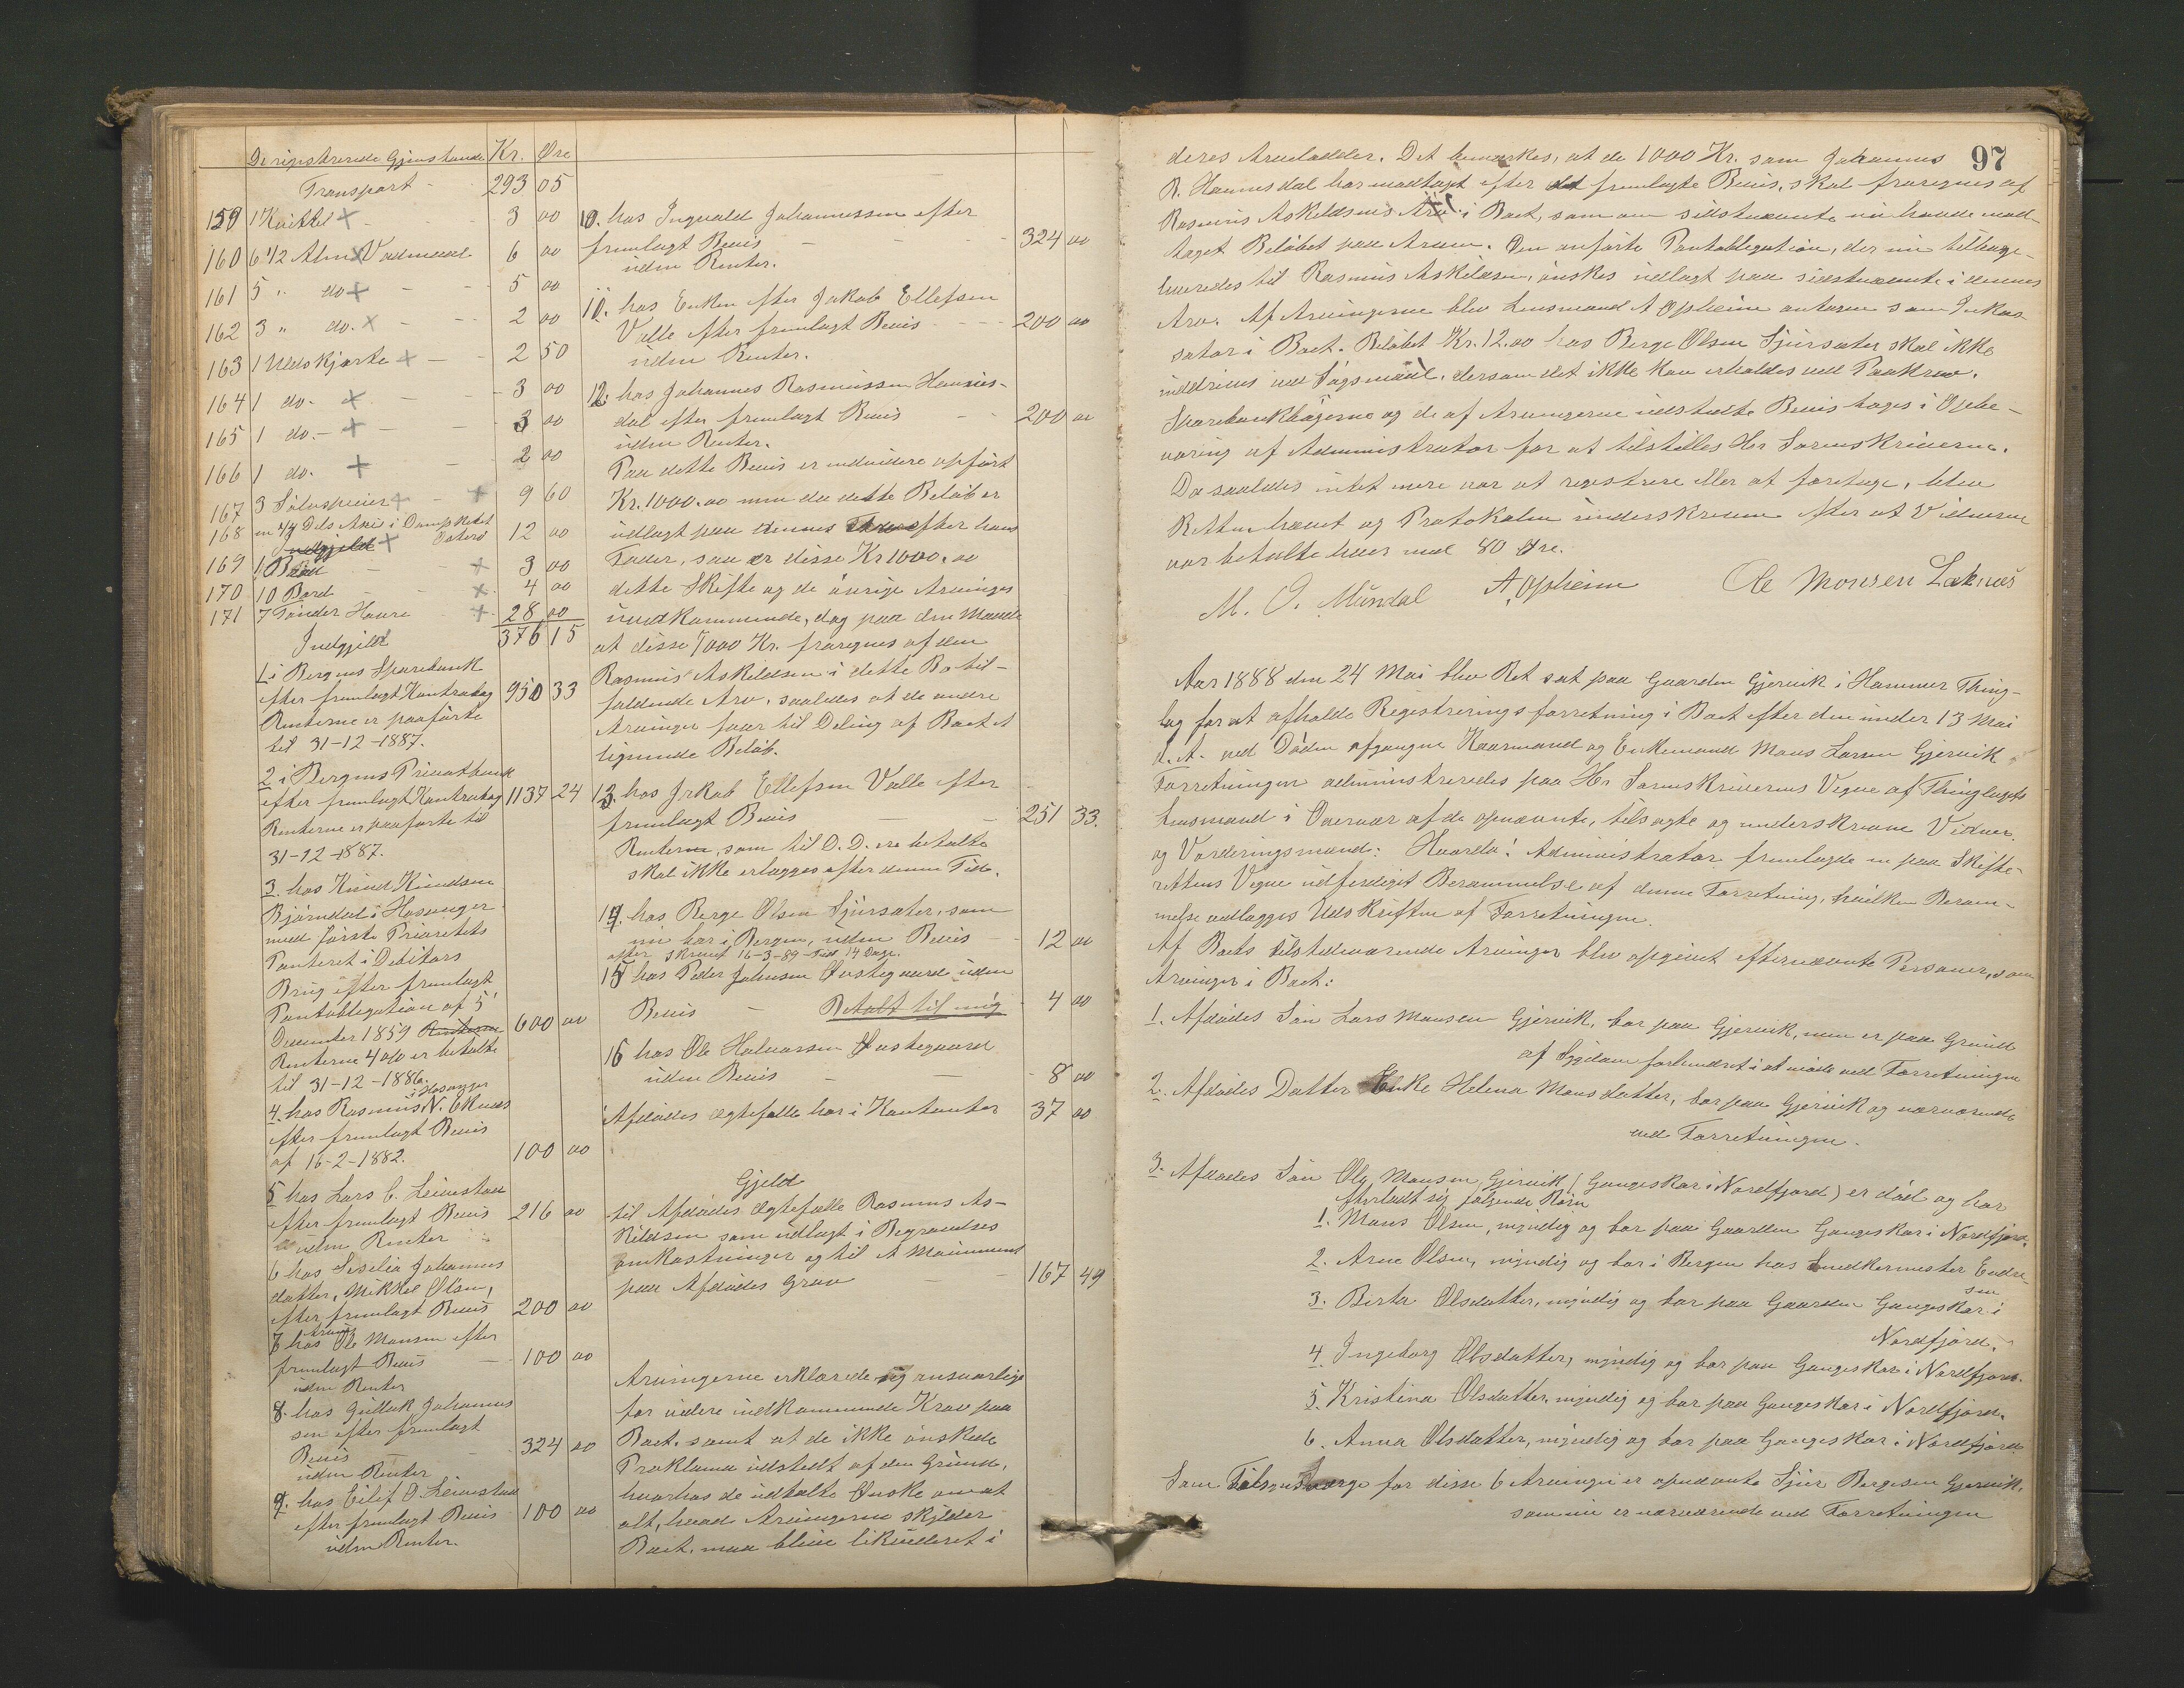 De registrerede Gjenstande Kr. Øre
Transport - 293 05
159 1 Kvittel 3 00
160 6 1/2 Alen Vadmaal 6 00
161 5 " do - - 5 00
162 3 " do. - - 2 00
163 1 Uldskjorte - - 2 50
164 1 do. - - 3 00
165 1 do. - - - 3 00
166 1 do. - 2 00
167 3 Sølvspiser - 9 60
168 en 1/4 Dels Axie i Dampskibet
Indgjeld Osterø 12 00
169 1 Baad - 3 00
170 10 Bord - 4 00
171 7 Tønder Havre - 28 00
376 15
Indgjeld
1. i Bergens Sparebank
efter fremlagt Kontrabog 950 33
Renterne er paaførte
til 31-12-1887.
2 i Bergens Privatbank
efter fremlagt Kontrabog 1137 24
Renterne er paaførte til
31-12-1887.
3. hos Knud Knudsen
Bjørndal i Hosanger
mod første Prioritets
Panteret i Debitors
Brug efter fremlagt
Pantobligation af 5'
December 1859 Renterne 600 00
Renterne 4 o/o er betalte
til 31-12-1886.
i Hosanger
4. hos Rasmus N. Eknes
efter fremlagt Bevis
af 16-2-1882. 100 00
5 hos Lars C. Leivestad
efter fremlagt Bevis 216 00
uden Renter
6 hos Sesilia Johannes
datter, Mikkel Olsen,
efter fremlagt Bevis 200 00
Arving
7 hos Ole Monsen efter
fremlagt Bevis - 100 00
uden Renter
8. hos Gullak Johannes
sen efter fremlagt
Bevis - 324 00
uden Renter
9. hos Eilif O. Leivestad
efter fremlagt Bevis 100 00
uden Renter.
10. hos Ingvald Johannessen efter
fremlagt Bevis - - - 324 00
uden Renter.
11. hos Enken efter Jakob Ellefsen
Valle efter fremlagt Bevis - - 200 00
uden Renter.
12. hos Johannes Rasmussen Hannes-
dal efter fremlagt Bevis - 200 00
uden Renter.
Paa dette Bevis er endvidere opført
Kr. 1000.00 men da dette Beløb er
udlagt paa dennes Arv efter hans
Fader, saa er disse Kr 1000.00
dette Skifte og de øvrige Arvinger
uvedkommende, dog paa den Maade
at disse 1000 Kr. fraregnes af den
Rasmus Askildsen i dette Bo til-
faldende Arv, saaledes at de andre
Arvinger faar til Deling af Boet et
lignende Beløb.
13. hos Jakob Ellefsen Valle efter
fremlagt Bevis - - 251 33.
Renterne, som til D. D. ere betalte
skal ikke erlægges efter denne Tid.
14. hos Berge Olsen Sjursæter, som
nu bor i Bergen, uden Bevis - 12 00
after skrevet 16-3-89 - Tid 14 Dage.
15 hos Peder Johnsen Øvstegaard uden
Bevis - Betalt til mig 4 00
16 hos Ole Halvorsen Øvstegaard
uden Bevis - - 8 00
Afdødes Ægtefælle har i Kontanter 37 00
Gjeld
til Afdødes Ægtefælle Rasmus As-
kildsen som udlagt i Begravelses
omkostninger og til et Monument
paa Afdødes Grav - - 167 49
Arvingerne erklærede sig ansvarlige
for videre indkommende Krav paa
Boet, samt at de ikke ønskede
Proklama udstedt af den Grund,
hvorhos de udtalte Ønske om at
alt, hvad Arvingerne skylder
Boet, maa blive likvideret i
97
deres Arvelodder. Det bemærkes, at de 1000 Kr. som Johannes
R. Hannesdal har modtaget efter det fremlagte Bevis, skal fraregnes af
Rasmus Askildsens Arv i Boet, som om sidstnævnte nu havde mod-
taget Beløbet paa Arven. Den anførte Pantobligation, der nu tilbage-
leveredes til Rasmus Askildsen, ønskes udlagt paa sidstnævnte i dennes
Arv. Af Arvingerne blev Lensmand A Opheim antagen som Inkas-
sator i Boet. Beløbet Kr. 12.00 hos Berge Olsen Sjursæter skal ikke
inddrives ved Søgsmaal, dersom det ikke kan erholdes ved Paakrav.
Sparebankbøgerne og de af Arvingerne udstedte Bevis toges i Opbe-
varing af Administrator for at tilstilles Hr Sorenskriveren.
Da saaledes intet mere var at registrere eller at foretage, blev
Retten hævet og Protokolen underskreven efter at Vidnerne
var betalte hver med 80 Øre.
M. O. Mundal A Opheim Ole Monsen Løknæs
Aar 1888 den 24 Mai blev Ret sat paa Gaarden Gjervik i Hammer Thing-
lag for at afholde Registreringsforretning i Boet efter den under 13 Mai
d. A. ved Døden afgangne Kaarmand og Enkemand Mons Larsen Gjervik
Forretningen administreredes paa Hr Sorenskriverens Vegne af Thinglagets
Lensmand i Overvær af de opnævnte, tilsagte og underskrevne Vidner
og Vurderingsmænd: Hvorda! Administrator fremlagde en paa Skifte-
rettens Vegne udfærdiget Berammelse af denne Forretning, hvilken Beram-
melse vedlægges Udskriften af Forretningen.
Af Boets tilstedeværende Arvinger blev opgivet efternævnte Personer, som
Arvinger i Boet:
1. Afdødes Søn Lars Monsen Gjervik, bor paa Gjervik, men er paa Grund
af Sygdom forhindret i at møde ved Forretningen
2. Afdødes Datter Enke Helena Monsdatter, bor paa Gjervik og nærværende
ved Forretningen.
3. Afdødes Søn Ole Monsen Gjervik (Gangeskar i Nordfjord) er død og har
efterladt sig følgende Børn
1. Mons Olsen, myndig og bor paa Gaarden Gangeskar i Nordfjord.
2. Arne Olsen, myndig og bor i Bergen hos Snedkermester Endre-
sen
3. Berta Olsdatter, myndig og bor paa Gaarden Gangeskar i
Nordfjord.
4. Ingeborg Olsdatter, myndig og bor paa Gangeskar i Nordfjord.
5. Kristina Olsdatter, myndig og bor paa Gangeskar i Nordfjord.
6. Anna Olsdatter, myndig og bor paa Gangeskar i Nordfjord
Som Tilsynsværge for disse 6 Arvinger er opnævnte Sjur Bergesen Gjervik,
som nu er nærværende ved Forretningen